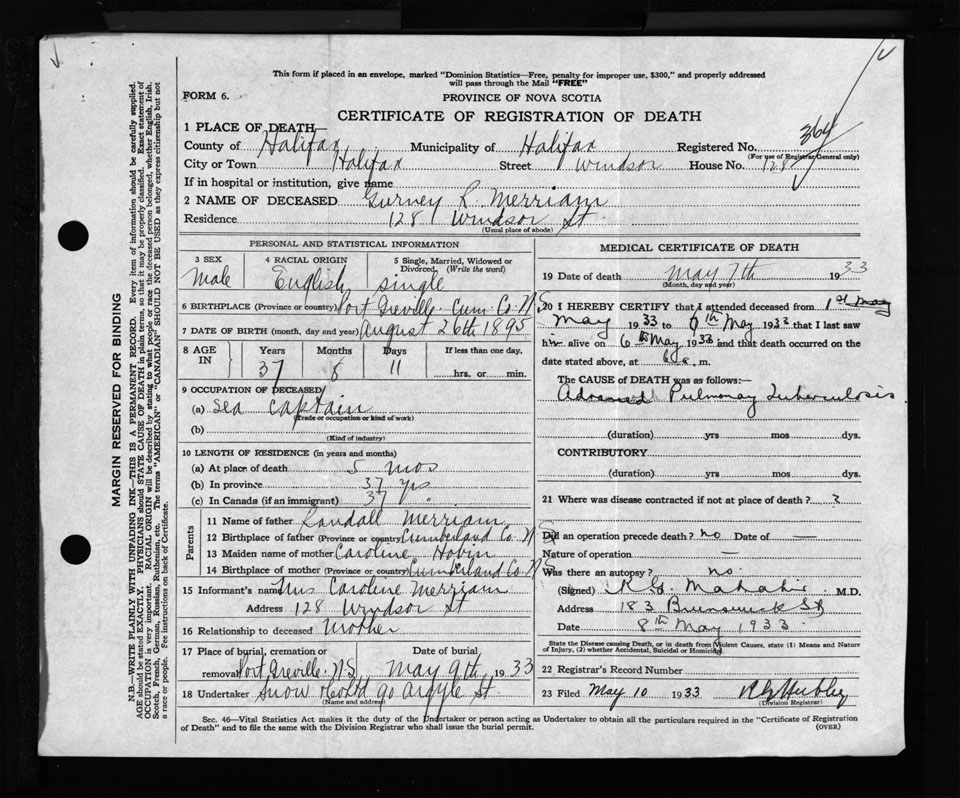 This form if placed in an envelope, marked "Dominion Statistics—Free, penalty for improper use, $300," and properly addressed
will pass through the Mail "FREE"
FORM 6.
PROVINCE OF NOVA SCOTIA
CERTIFICATE OF REGISTRATION OF DEATH
1 PLACE OF DEATH—
County of Halifax Municipality of Halifax Registered No. 364
(For use of Registrar General only)
City or Town Halifax Street Windsor House No. 128
If in hospital or institution, give name
2 NAME OF DECEASED Gurney R. Merriam
Residence 128 Windsor St
(Usual place of abode)
PERSONAL AND STATISTICAL INFORMATION
3 SEX Male
4 RACIAL ORIGIN English
5 Single, Married, Widowed or Divorced. (Write the word) single
6 BIRTHPLACE (Province or country) Port Greville Cum. Co. N.S
7 DATE OF BIRTH (month, day and year) August 26th 1895
8 AGE IN Years 37 Months 8 Days 11 If less than one day, hrs. or min.
9 OCCUPATION OF DECEASED
(a) Sea captain
(Trade or occupation or kind of work)
(b)
(Kind of industry)
10 LENGTH OF RESIDENCE (in years and months)
(a) At place of death 5 mos
(b) In province 37 yrs
(c) In Canada (if an immigrant) 37
Parents
11 Name of father Randall Merriam
12 Birthplace of father (Province or country) Cumberland Co. N S
13 Maiden name of mother Caroline
14 Birthplace of mother (Province or country) Cumberland Co. N S
15 Informant's name Mrs Caroline Merriam
Address 128 Windsor St
16 Relationship to deceased Mother
17 Place of burial, cremation or removal Port Greville N.S. Date of burial May 9th, 1933
18 Undertaker Snow & Co Ltd 90 Argyle St
(Name and address)
MEDICAL CERTIFICATE OF DEATH
19 Date of death May 7th 1933
(Month, day and year)
20 I HEREBY CERTIFY that I attended deceased from 1st May
May 1933 to May 1933 that I last saw
him alive on 6th May 1933 and that death occurred on the
date stated above, at 6 a. m.
The CAUSE OF DEATH was as follows:—
Advanced Pulmonary Tuberculosis
(duration) yrs mos dys.
CONTRIBUTORY
(duration) yrs mos dys.
21 Where was disease contracted if not at place of death? ?
Did an operation precede death? no Date of —
Nature of operation —
Was there an autopsy? no.
(Signed) M.D.
Address 183 Brunswick St
Date 8th May 1933
State the Disease causing Death, or in death from Violent Causes, state (1) Means and Nature of Injury, (2) whether Accidental, Suicidal or Homicidal.
22 Registrar's Record Number
23 Filed May 10 1933
(Division Registrar)
Sec. 46—Vital Statistics Act makes it the duty of the Undertaker or person acting as Undertaker to obtain all the particulars required in the "Certificate of Registration
of Death" and to file the same with the Division Registrar who shall issue the burial permit.
(OVER)
MARGIN RESERVED FOR BINDING
N.B.—WRITE PLAINLY WITH UNFADING INK—THIS IS A PERMANENT RECORD. Every item of information should be carefully supplied.
AGE should be stated EXACTLY. PHYSICIANS should STATE CAUSE OF DEATH in plain terms, so that it may be properly classified. Exact statement of
OCCUPATION is very important. RACIAL ORIGIN will be described by stating to what people or race the deceased person belonged, whether English, Irish,
Scotch, French, German, Russian, Ruthenian, etc. The terms "AMERICAN" or "CANADIAN" SHOULD NOT BE USED as they express citizenship but not
a race or people. See instructions on back of Certificate.